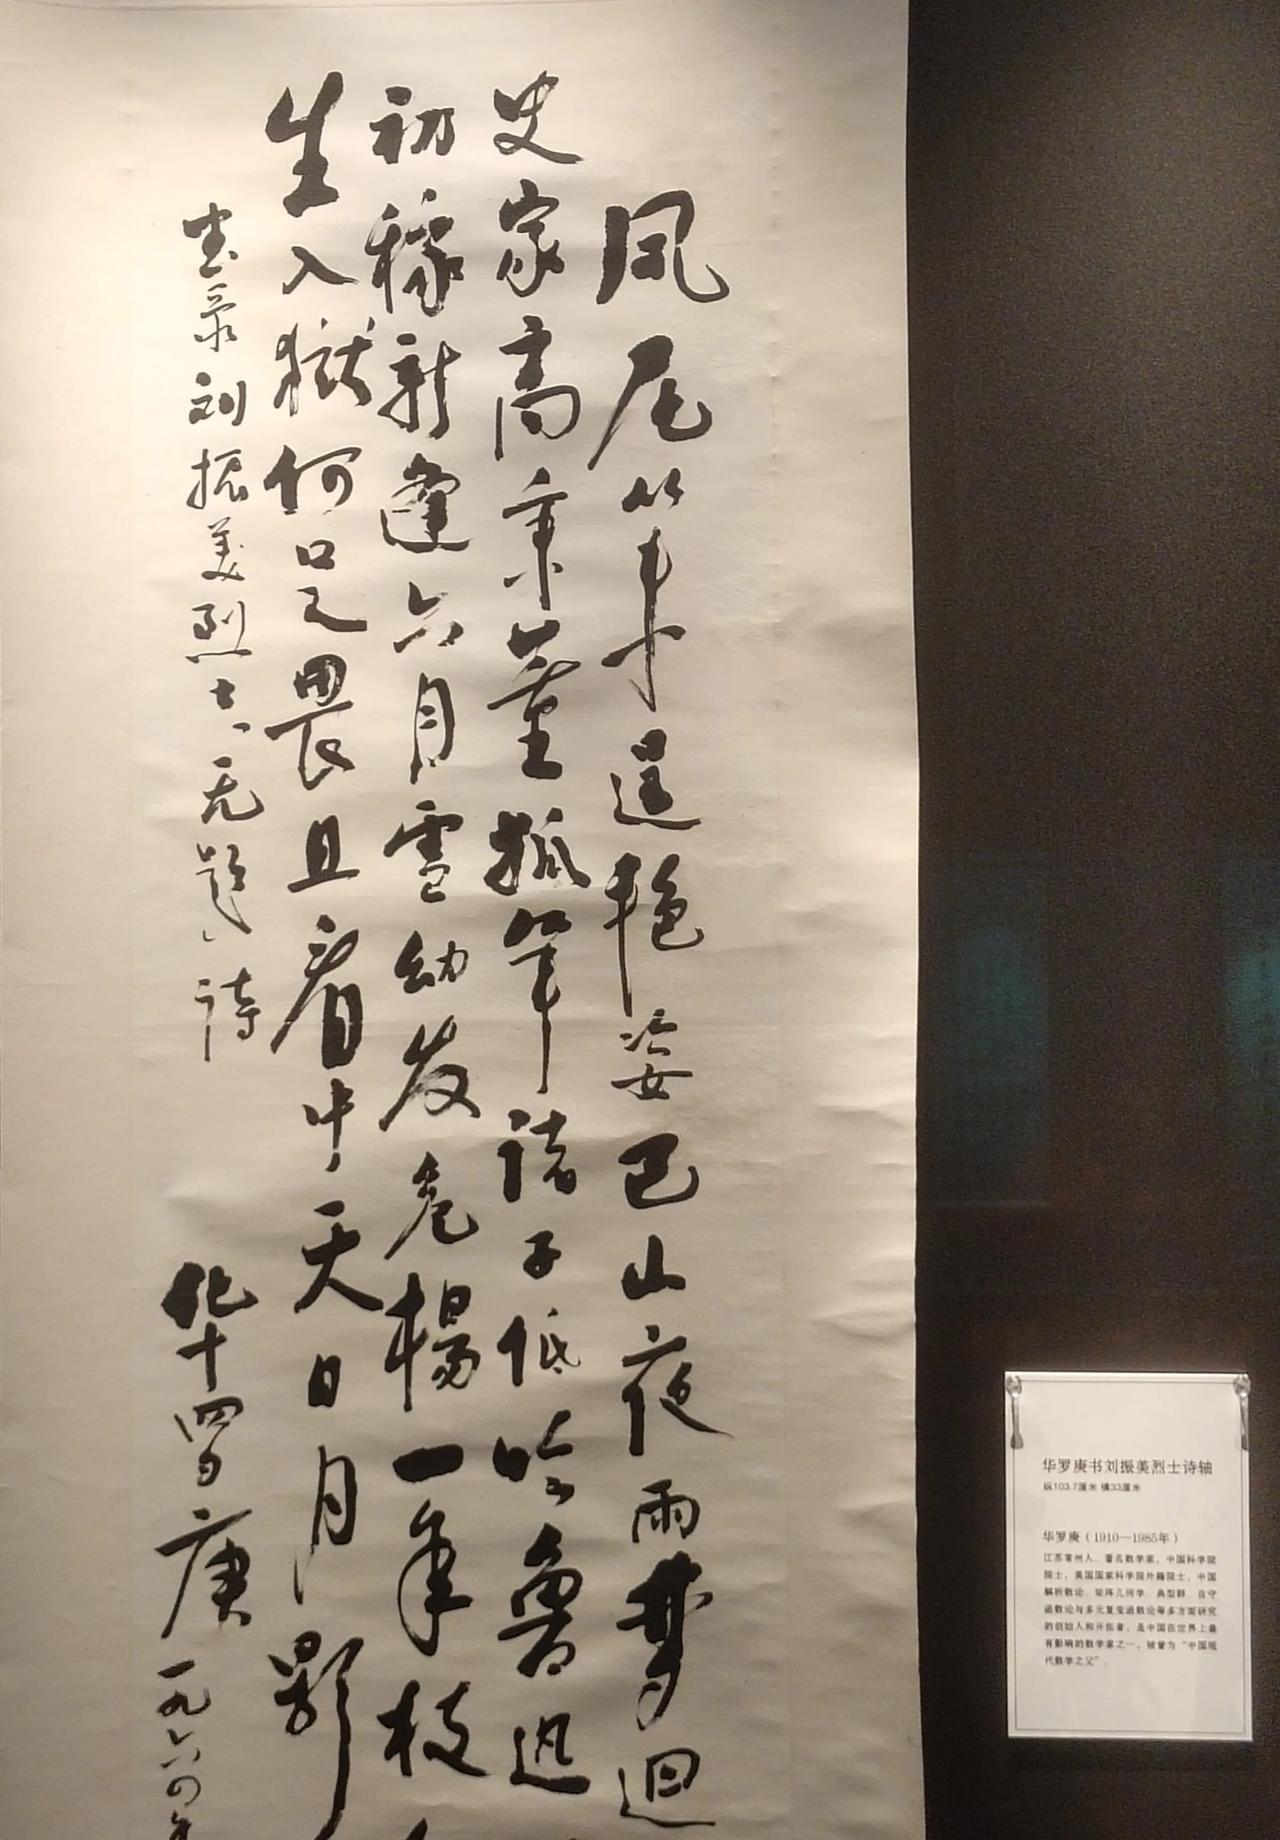 凤尾竿逞艳姿巴山夜雨梦迴
史家高秉董狐笔诸子低吟鲁迅
初稼新逢六月雪幼发危杨一年枝
生入狱何足畏且看中天日月影
书录刘振美烈士“无题”诗
华罗庚 一九六四年
华罗庚书刘振美烈士诗轴
纵103.7厘米 横33厘米
华罗庚（1910—1985年）
江苏常州人。著名数学家，中国科学院
院士，美国国家科学院外籍院士，中国
解析数论、矩阵几何学、典型群、自守
函数论与多元复变函数论等多方面研究
的创始人和开拓者，是中国在世界上最
有影响的数学家之一，被誉为“中国现
代数学之父”。